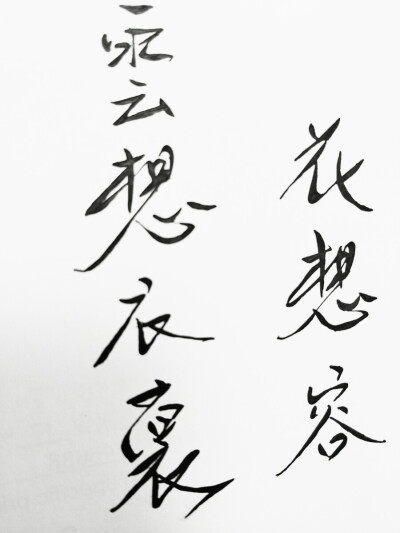 雲想衣裳
花想容